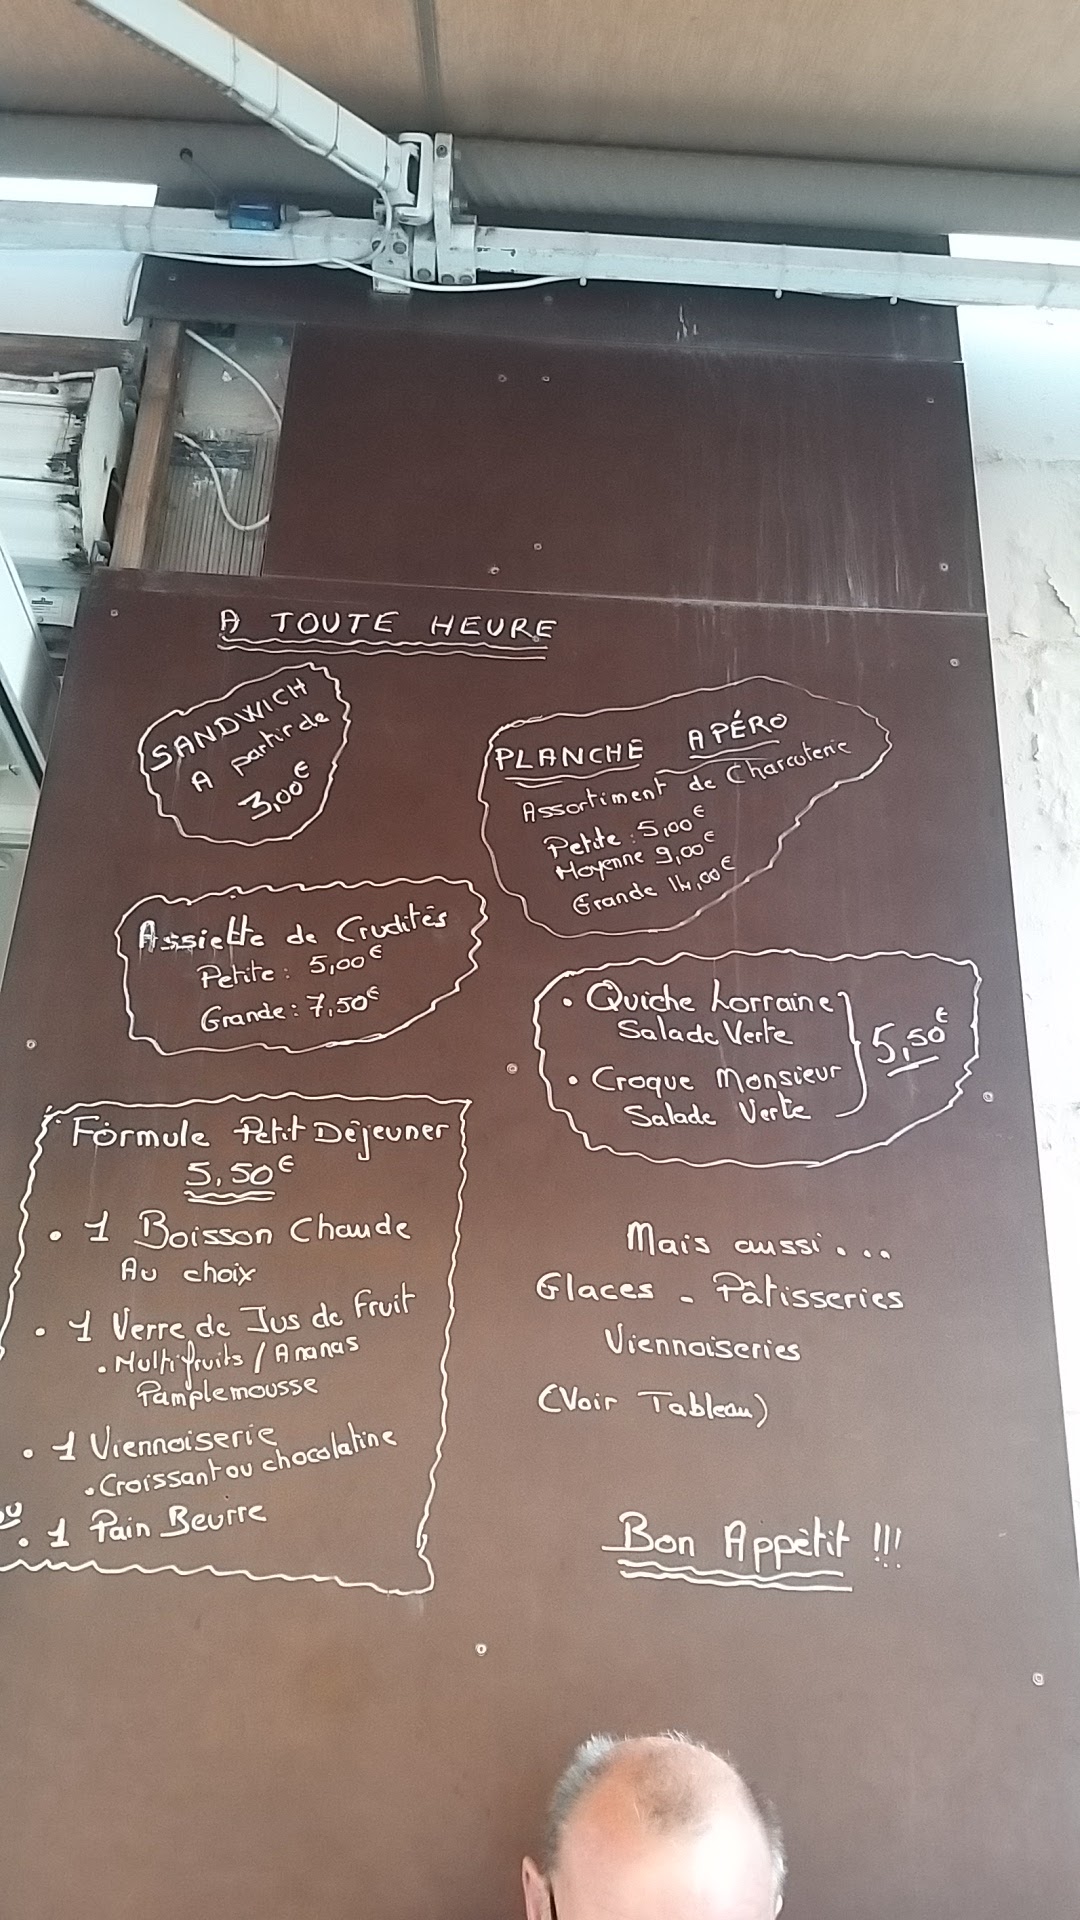 A TOUTE HEURE
SANDWICH
A partir de
3,00€
PLANCHE APÉRO
Assortiment de Charcuterie
Petite : 5,00€
Moyenne 9,00€
Grande 14,00€
Assiette de Crudités
Petite : 5,00€
Grande : 7,50€
• Quiche Lorraine
Salade Verte
• Croque Monsieur
Salade Verte
5,50€
Formule Petit Déjeuner
5,50€
• 1 Boisson Chaude
Au choix
• 1 Verre de Jus de Fruit
• Multifruits / Ananas
Pamplemousse
• 1 Viennoiserie
• Croissant ou chocolatine
ou
• 1 Pain Beurre
Mais aussi...
Glaces - Pâtisseries
Viennoiseries
(Voir Tableau)
Bon Appétit !!!